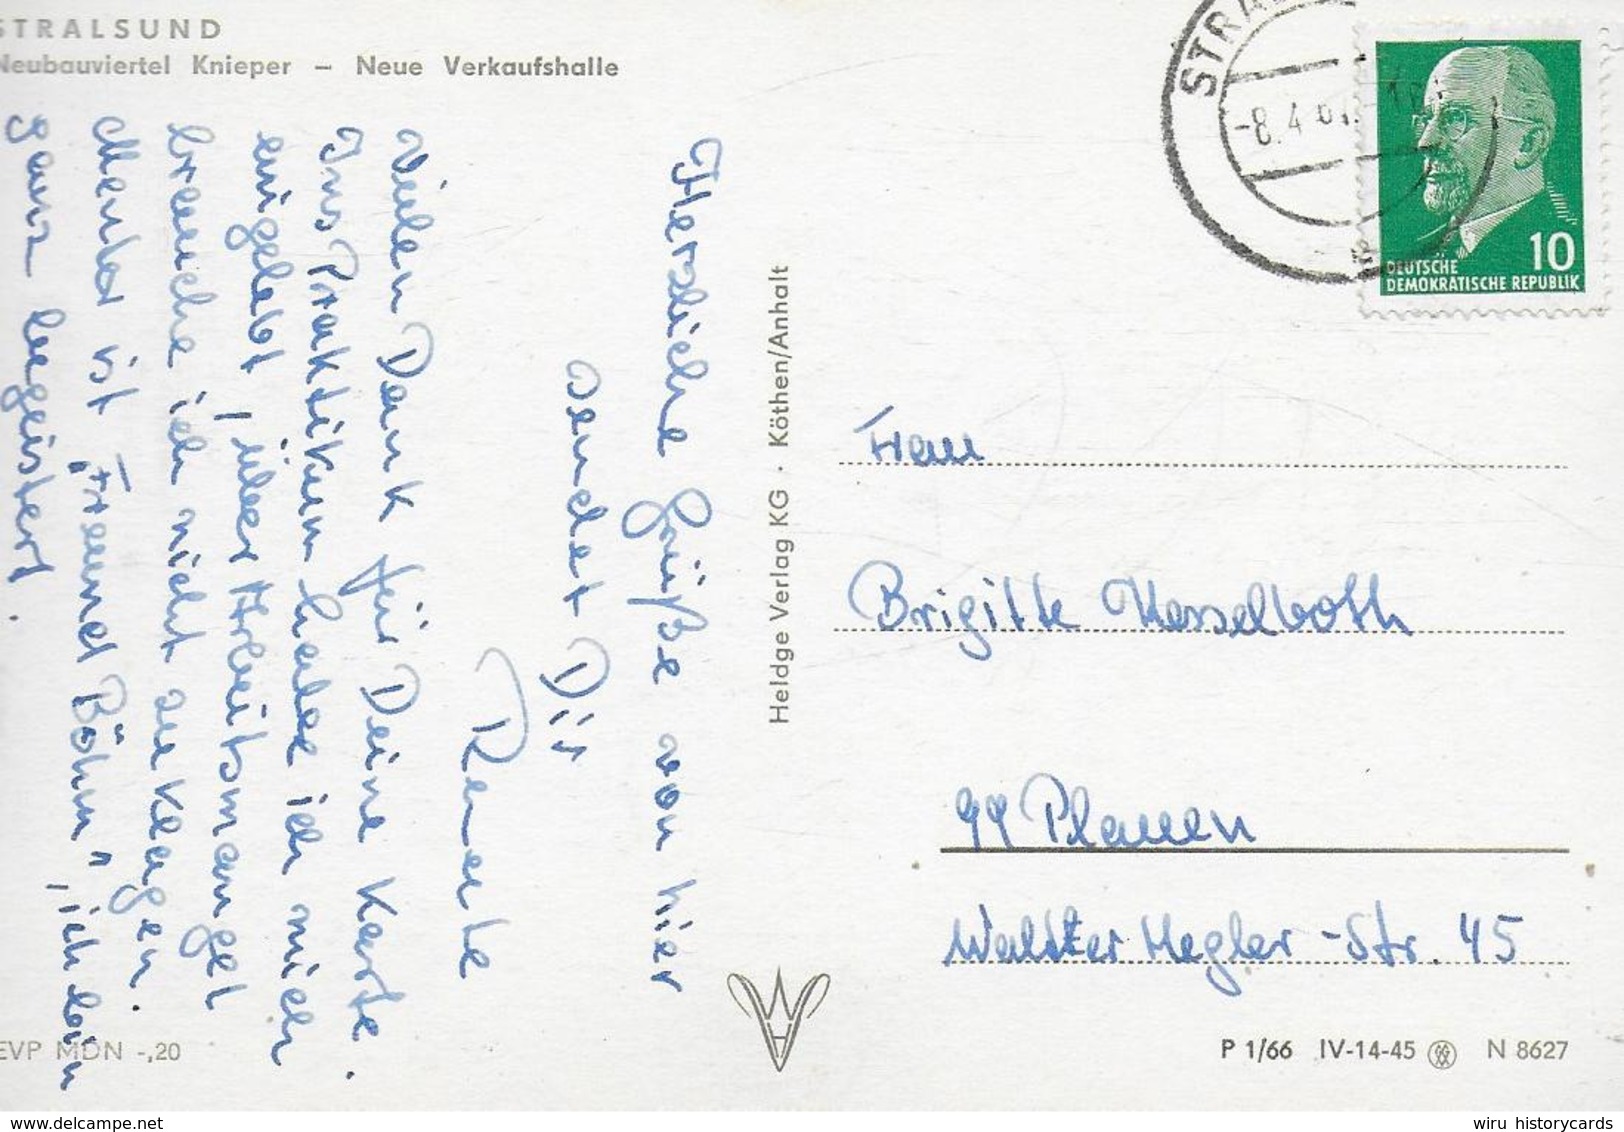 STRALSUND
Neubauviertel Knieper – Neue Verkaufshalle
Herzliche Grüße von hier
sendet Dir
Renate
Vielen Dank für Deine Karte.
Ins Praktikum habe ich mich
eingelebt, über Arbeitsmangel
brauche ich nicht zu klagen.
Mentor ist „Freund Böhm“, ich bin
ganz begeistert.
EVP MDN -,20
Heldge Verlag KG · Köthen/Anhalt
-8.4
10
DEUTSCHE
DEMOKRATISCHE REPUBLIK
Frau
Brigitte Kesselboth
99 Plauen
Walter Hegler-Str. 45
P 1/66 IV-14-45 N 8627
wiru historycards